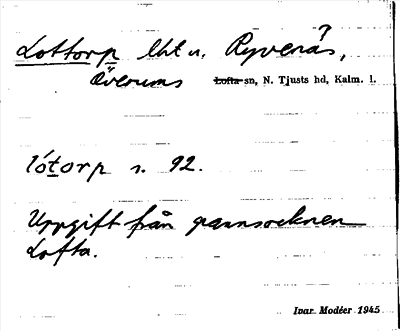 Lottorp lht u. Ryvenäs,
?
Överums Lofta sn, N. Tjusts hd, Kalm. l.
lótorp s. 92.
Uppgift från grannsocknen
Lofta.
Ivar Modéer 1945